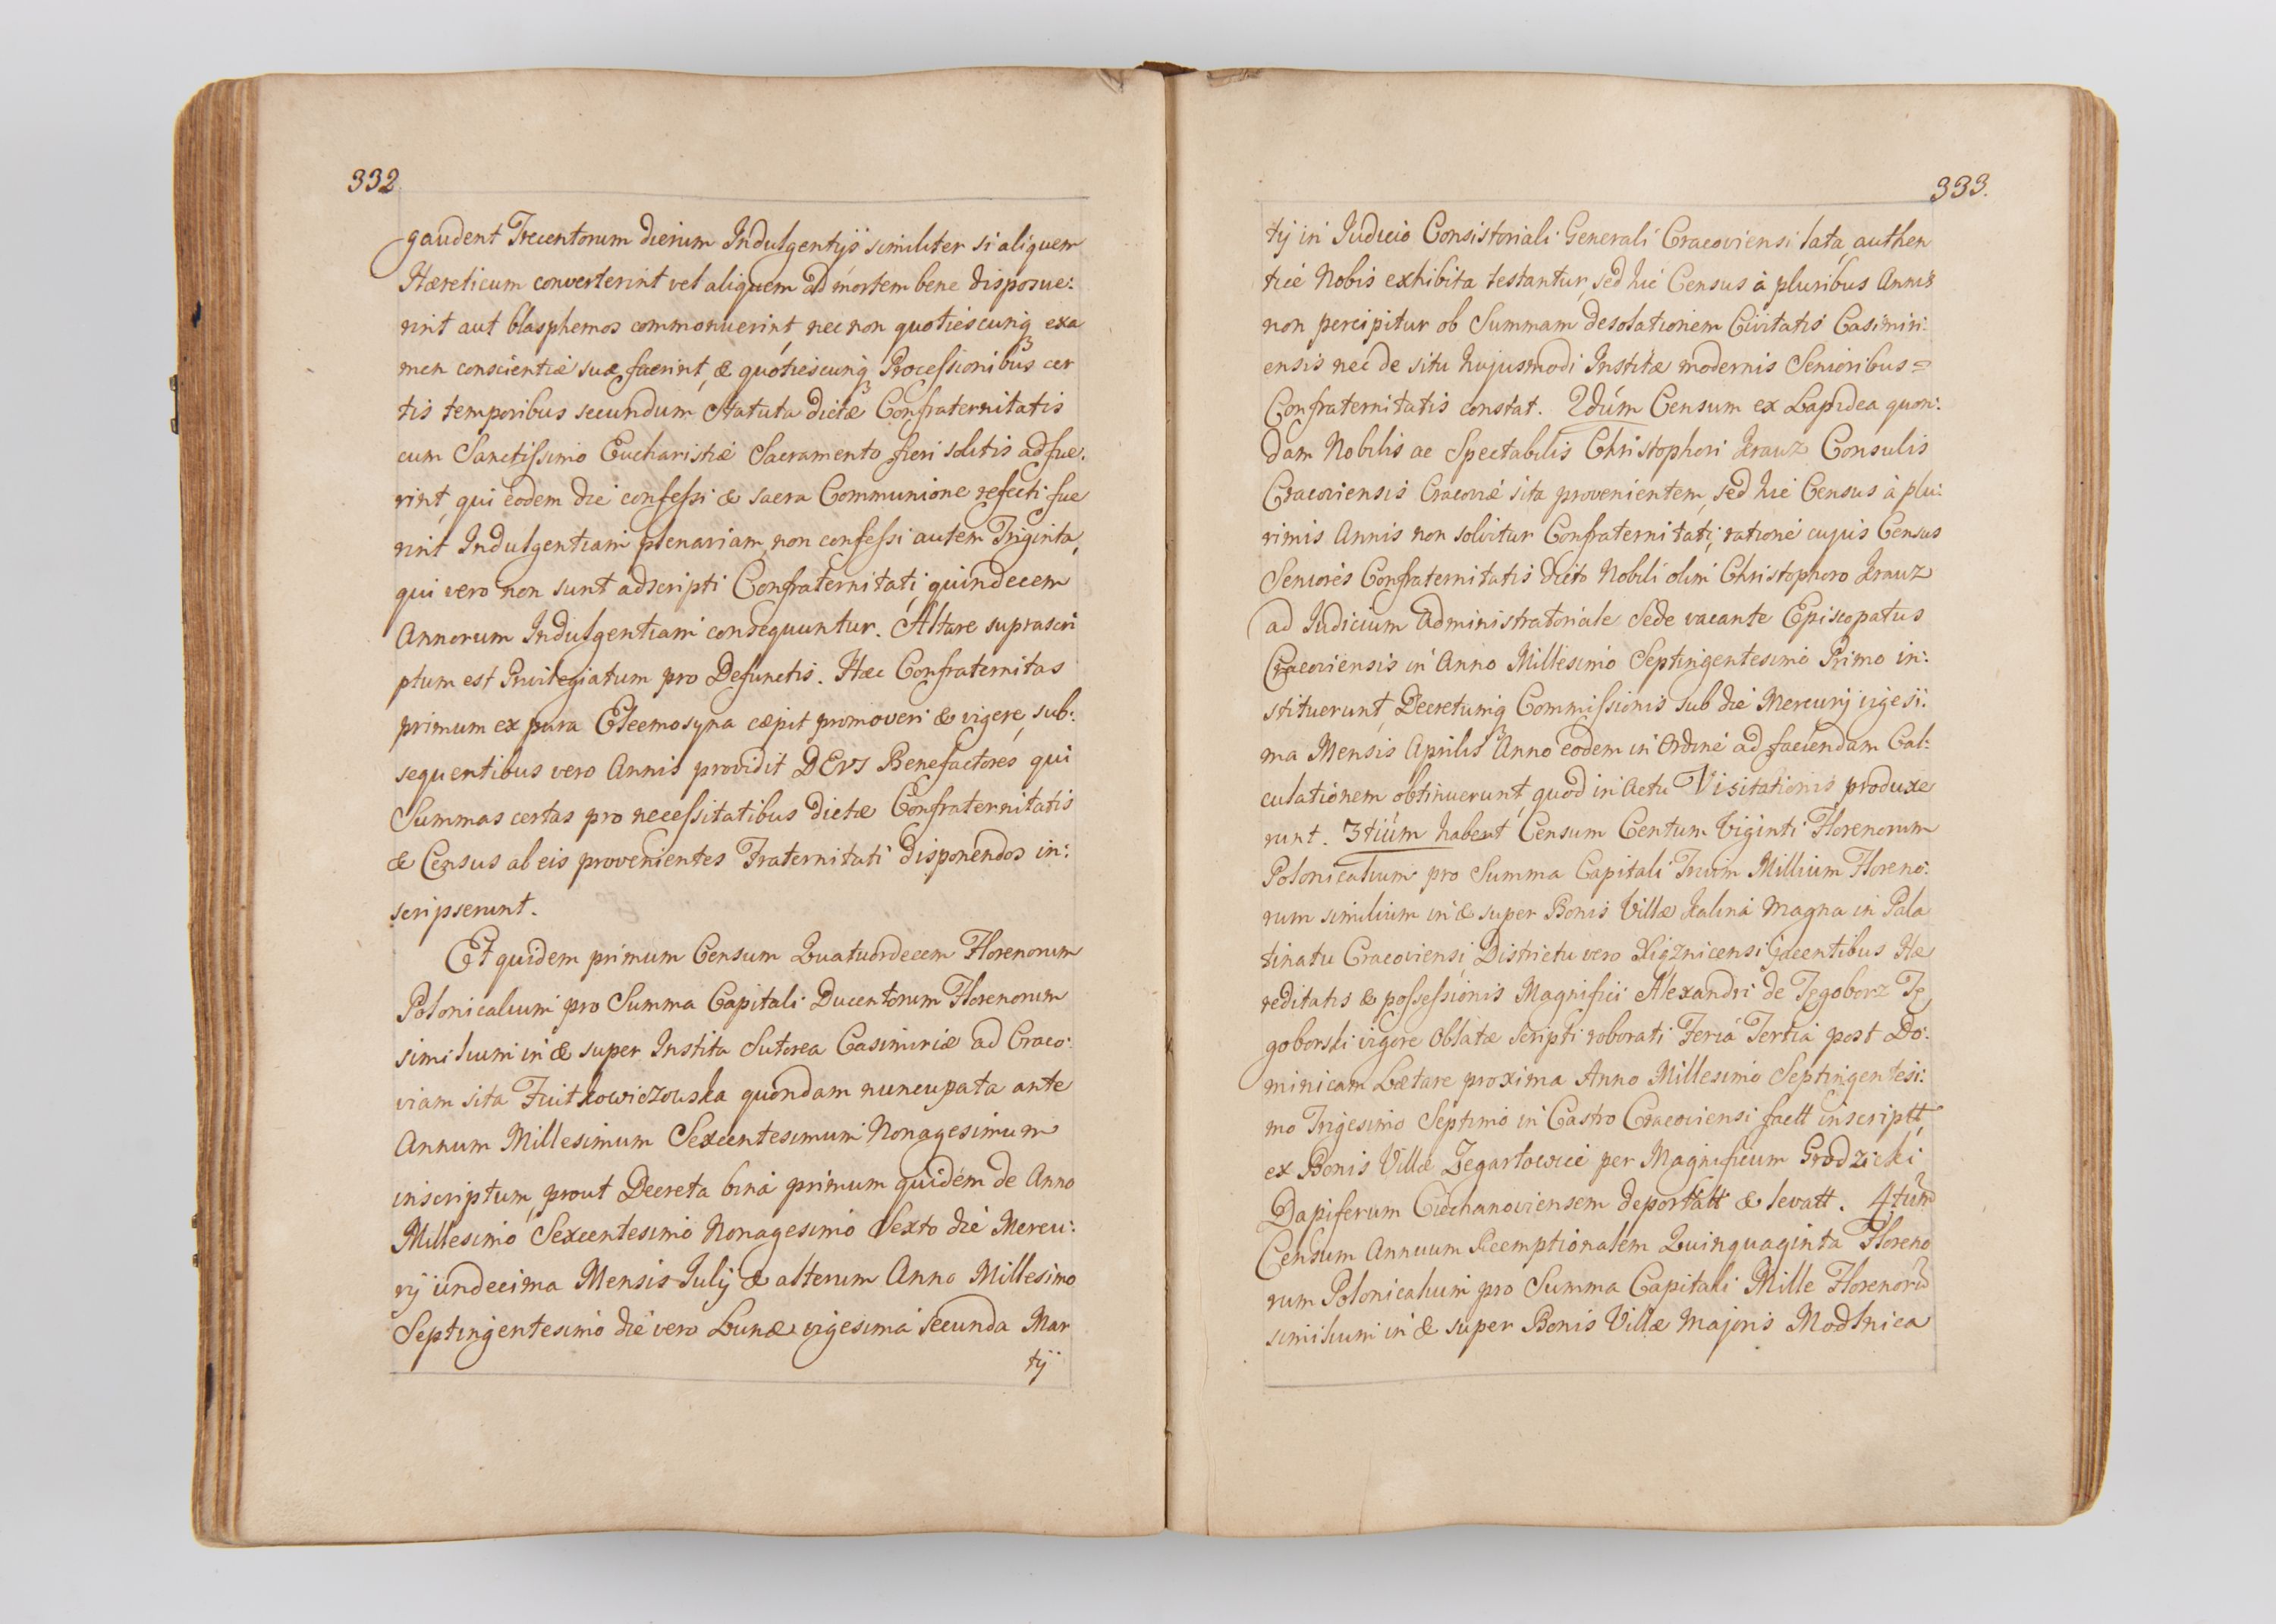 332
gaudent Trecentorum dierum Indulgentijs similiter si aliquem
Hæreticum converterint vel aliquem ad mortem bene disposue:
rint aut blasphemos commonuerint, nec non quotiescunq3 exa
men conscientiæ suæ fecerint, & quotiescunq3 Processionibus cer
tis temporibus secundum Statuta dictæ Confraternitatis
cum Sanctissimo Eucharistiæ Sacramento fieri solitis adfue:
rint, qui eodem die confessi & sacra Communione refecti fue
rint Indulgentiam plenariam, non confessi autem Triginta,
qui vero non sunt adscripti Confraternitati, quindecem
Annorum Indulgentiam consequuntur. Altare suprascri
ptum est Privilegiatum pro Defunctis. Hæc Confraternitas
primum ex pura Eleemosyna cæpit promoveri & vigere, sub:
sequentibus vero Annis providit DEVS Benefactores qui
Summas certas pro necessitatibus dictæ Confraternitatis
& Census ab eis provenientes Fraternitati disponendos in:
scripserunt.
Et quidem primum Censum Quatuordecem Florenorum
Polonicalium pro Summa Capitali Ducentorum Florenorum
similium in & super Instita Sutorea Casimiriæ ad Craco:
viam sita Fuitkowiczowska quondam nuncupata ante
Annum Millesimum Sexcentesimum Nonagesimum
inscriptum, prout Decreta bina primum quidem de Anno
Millesimo Sexcentesimo Nonagesimo Sexto die Mercu:
rij undecima Mensis Julij & alterum Anno Millesimo
Septingentesimo die vero Lunæ vigesima secunda Mar
tij
333.
tij in Iudicio Consistoriali Generali Cracoviensi lata, authen
tice Nobis exhibita testantur, sed hic Census à pluribus Annis
non percipitur ob Summam desolationem Civitatis Casimiri:
ensis nec de situ hujusmodi Institæ modernis Senioribus =
Confraternitatis constat. 2dum Censum ex Lapidea quon:
dam Nobilis ac Spectabilis Christophori Krauz Consulis
Cracoviensis Cracoviæ sita provenientem, sed hic Census à plu:
rimis Annis non solvitur Confraternitati, ratione cujus Census
Seniores Confraternitatis dicto Nobili olim Christophoro Krauz
ad Iudicium Administratoriale Sede vacante Episcopatus
Cracoviensis in Anno Millesimo Septingentesimo Primo in:
stituerunt, Decretumq3 Commissionis sub die Mercurij vigesi:
ma Mensis Aprilis Anno eodem in Ordine ad faciendam Cal:
culationem obtinuerunt, quod in Actu Visitationis produxe
runt. 3tium habent Censum Centum Viginti Florenorum
Polonicalium pro Summa Capitali Trium Millium Floreno:
rum similium in & super Bonis Villæ Kalina Magna in Pala
tinatu Cracoviensi Districtu vero Xiąznicensi jacentibus Hæ
reditatis & possessionis Magnifici Alexandri de Tęgoborz Tę
goborski vigore Oblatæ scripti roborati Feria Tertia post Do:
minicam Lætare proxima Anno Millesimo Septingentesi:
mo Trigesimo Septimo in Castro Cracoviensi factt inscriptt,
ex Bonis Villæ Zegartowice per Magnificum Grodzicki
Dapiferum Ciechanoviensem deportatt & levatt. 4tum
Censum Annuum Reemptionalem Quinquaginta Floreno
rum Polonicalium pro Summa Capitali Mille Florenorum
similium in & super Bonis Villæ Majoris Modlnica